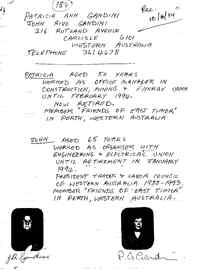 (159)
Rec
10/10/94
PATRICIA ANN GANDINI
JOHN GANDINI
216 RUTLAND AVENUE
CARLISLE 6101
WESTERN AUSTRALIA
TELEPHONE 3614678
PATRICIA AGED 50 YEARS
WORKED AS OFFICE MANAGER IN
CONSTRUCTION, MINING & FINANCE UNION
UNTIL FEBRUARY 1994.
NOW RETIRED.
MEMBER "FRIENDS OF EAST TIMOR"
IN PERTH, WESTERN AUSTRALIA
JOHN AGED 65 YEARS
WORKED AS ORGANISER WITH
ENGINEERING & ELECTRICAL UNION
UNTIL RETIREMENT IN JANUARY
1994.
PRESIDENT TRADES & LABOR COUNCIL
OF WESTERN AUSTRALIA 1985-1993.
MEMBER "FRIENDS OF EAST TIMOR"
IN PERTH, WESTERN AUSTRALIA.
J R Gandini
P. A. Gandini